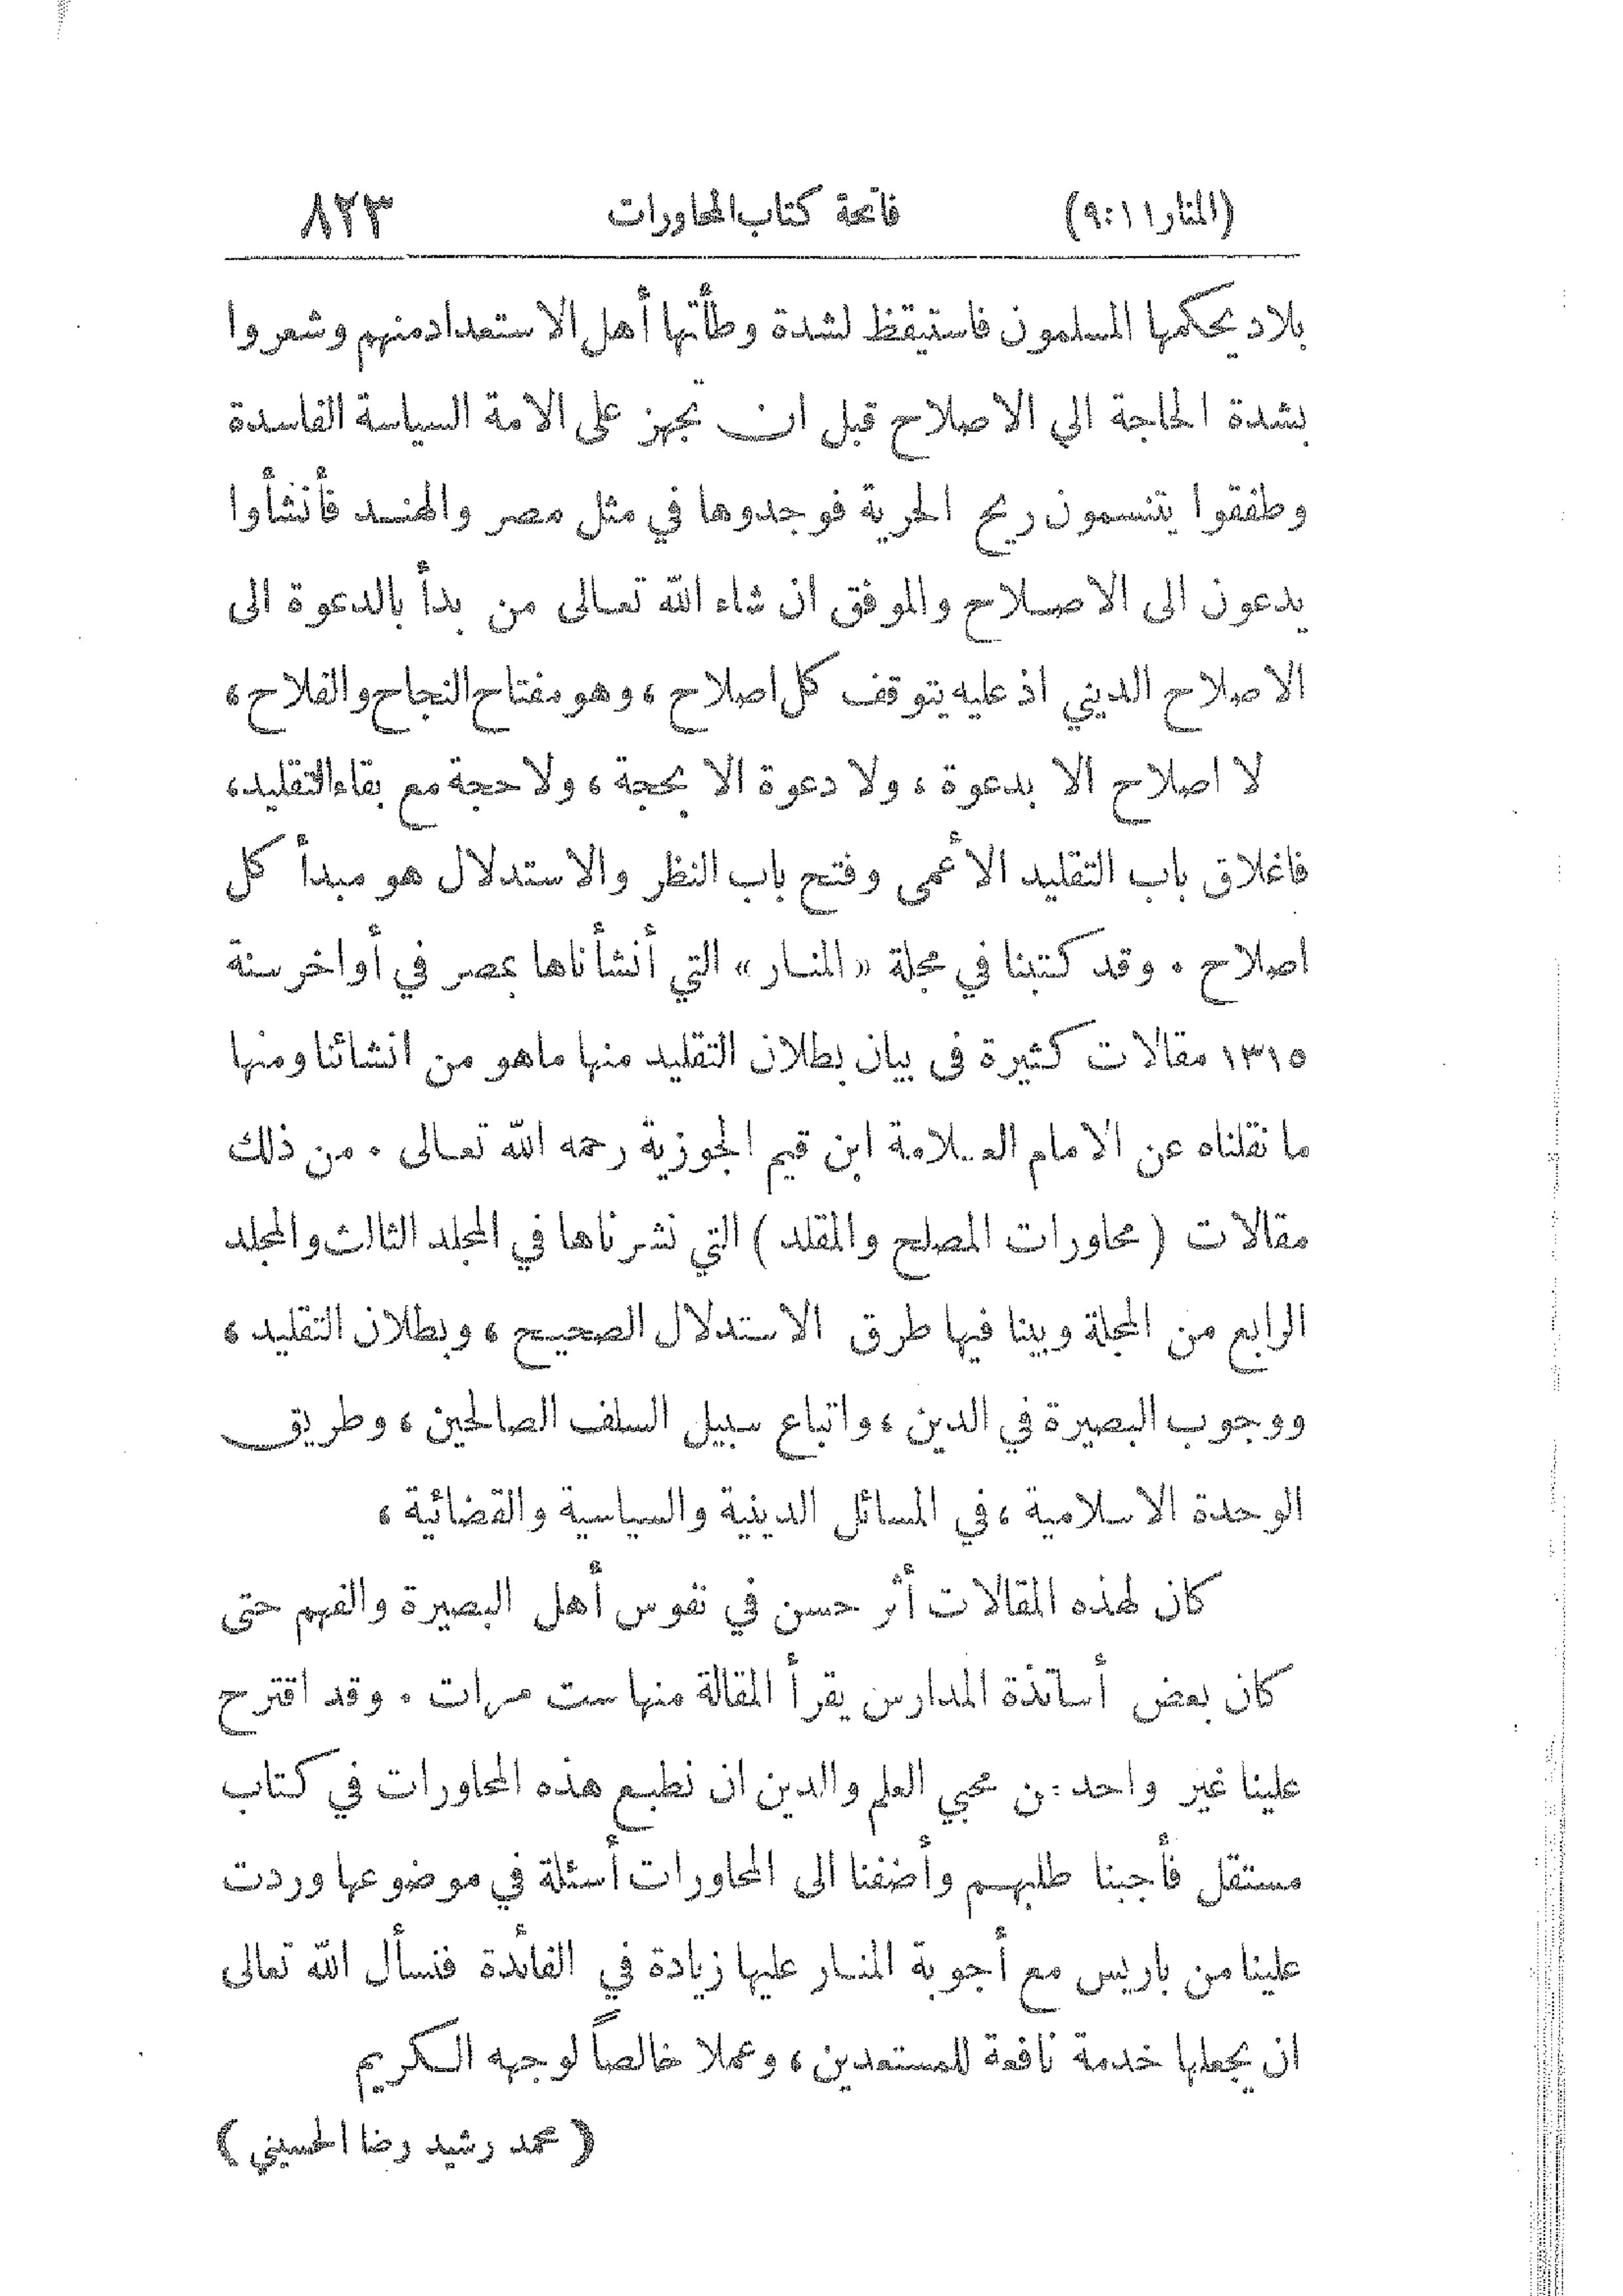 (المنار ١١:٩) فاتحة كتاب المحاورات ٨٢٣
بلاد يحكمها المسلمون فاستيقظ لشدة وطأتها أهل الاستعداد منهم وشعروا
بشدة الحاجة الي الاصلاح قبل ان تجهز على الامة السياسة الفاسدة
وطفقوا يتنسمون ريح الحرية فوجدوها في مثل مصر والهند فأنشأوا
يدعون الى الاصلاح والموفق ان شاء الله تعالى من بدأ بالدعوة الى
الاصلاح الديني اذ عليه يتوقف كل اصلاح ، وهو مفتاح النجاح والفلاح ،
لا اصلاح الا بدعوة ، ولا دعوة الا بحجة ، ولا حجة مع بقاء التقليد،
فاغلاق باب التقليد الأعمى وفتح باب النظر والاستدلال هو مبدأ كل
اصلاح . وقد كتبنا في مجلة «المنار» التي أنشأناها بمصر في أواخر سنة
١٣١٥ مقالات كثيرة فى بيان بطلان التقليد منها ماهو من انشائنا ومنها
ما نقلناه عن الامام العلامة ابن قيم الجوزية رحمه الله تعالى . من ذلك
مقالات (محاورات المصلح والمقلد) التي نشرناها في المجلد الثالث والمجلد
الرابع من المجلة وبينا فيها طرق الاستدلال الصحيح ، وبطلان التقليد ،
ووجوب البصيرة في الدين ، واتباع سبيل السلف الصالحين ، وطريق
الوحدة الاسلامية ، في المسائل الدينية والسياسية والقضائية ،
كان لهذه المقالات أثر حسن في نفوس أهل البصيرة والفهم حتى
كان بعض أساتذة المدارس يقرأ المقالة منها ست مرات . وقد اقترح
علينا غير واحد من محبي العلم والدين ان نطبع هذه المحاورات في كتاب
مستقل فأجبنا طلبهم وأضفنا الى المحاورات أسئلة في موضوعها وردت
علينا من باريس مع أجوبة المنار عليها زيادة في الفائدة فنسأل الله تعالى
ان يجعلها خدمة نافعة للمستعدين ، وعملا خالصاً لوجهه الكريم
(محمد رشيد رضا الحسيني)